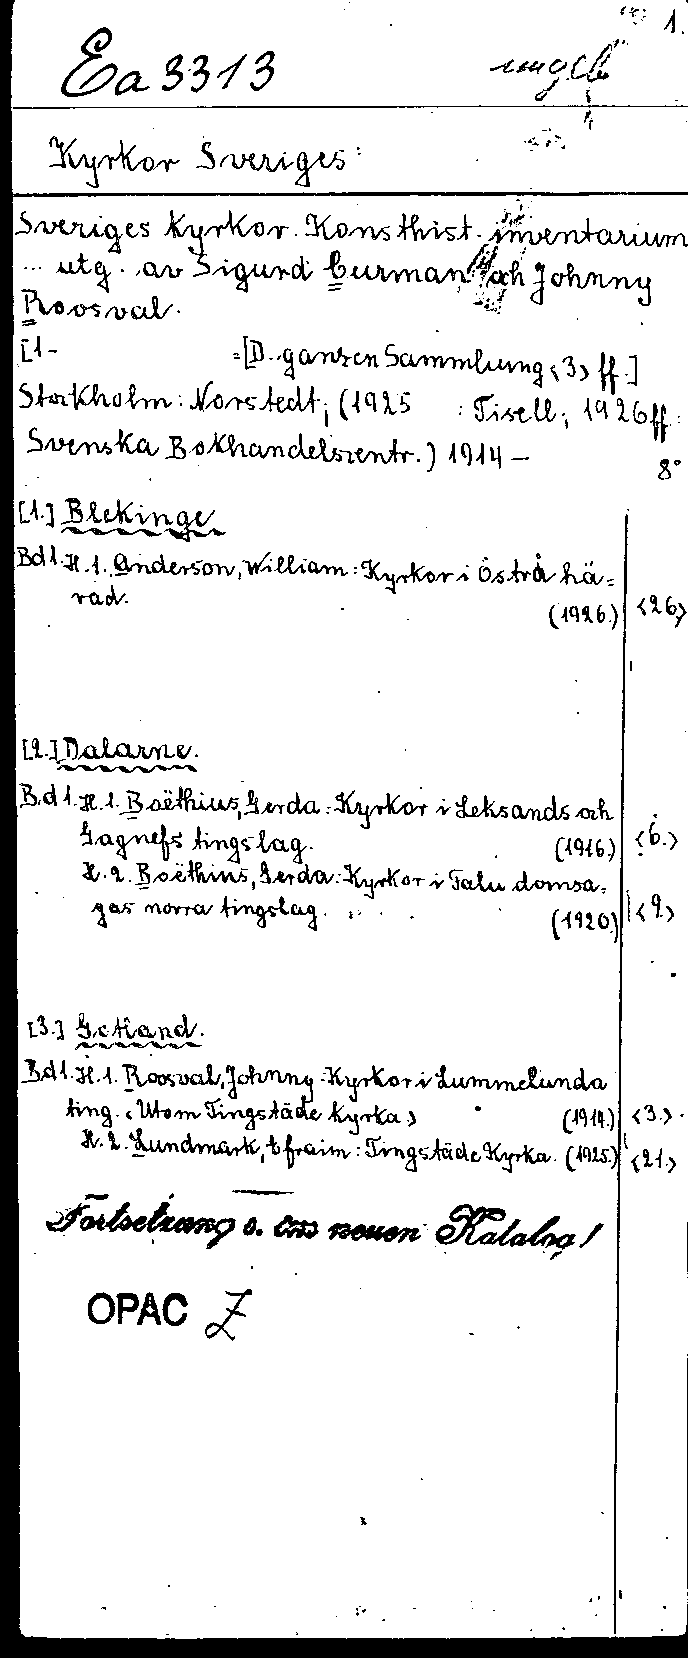 1.
Ea 3313
ungeb
Kyrkor Sveriges
Sveriges Kyrkor. Konsthist. inventarium
... utg. av Sigurd Curman och Johnny
Roosval.
[1- =[D. ganzen Sammlung <3> ff.]
Stockholm: Norstedt; (1925 : Tisell; 1926 ff:
Svenska Bokhandelszentr.) 1914 — 8°
[1.] Blekinge
Bd 1. H. 1. Anderson, William: Kyrkor i Östra hä=
rad. (1926.) <26>
[2.] Dalarne.
Bd 1. H. 1. Boëthius, Gerda: Kyrkor i Leksands och
Gagnefs tingslag. (1916.) <6.>
H. 2. Boëthius, Gerda: Kyrkor i Falu domsa=
gas norra tingslag. (1920.) <9.>
[3.] Gotland.
Bd 1. H. 1. Roosval, Johnny: Kyrkor i Lummelunda
ting. <Utom Tingstäde kyrka> (1914.) <3.>
H. 2. Lundmark, Efraim: Tingstäde Kyrka. (1925.) <21.>
Fortsetzung s. im neuen Katalog!
OPAC Z